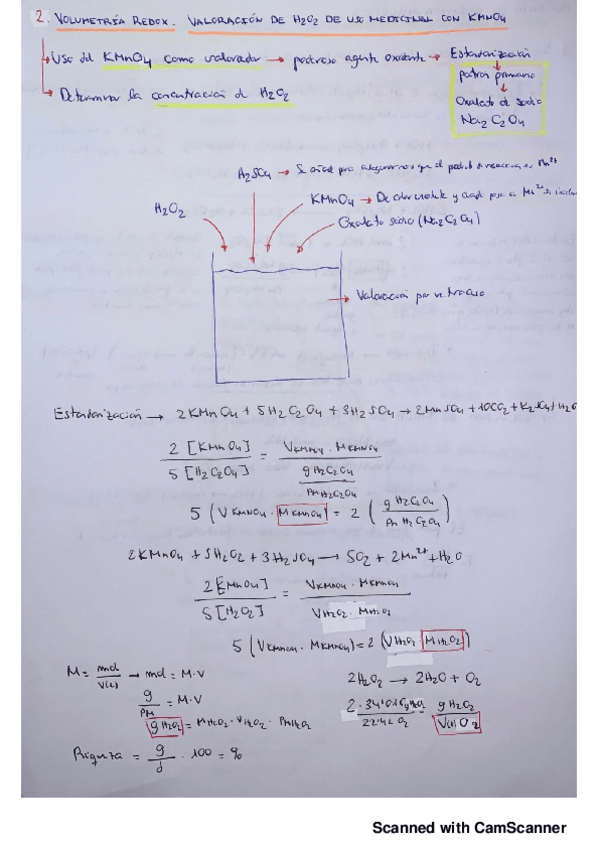 2. VOLUMETRÍA REDOX. VALORACIÓN DE H2O2 DE USO MEDICINAL CON KMnO4
Uso del KMnO4 como valorador → poderoso agente oxidante → Estandarización
patrón primario
Oxalato de sodio
Na2C2O4
Determinar la concentración de H2O2
H2SO4 → Se añade para asegurarnos que el producto de reacción es Mn2+
KMnO4 → De color violeta y cuando pasa a Mn2+ es incoloro
H2O2
Oxalato sodio (Na2C2O4)
→ Valoración por retroceso
Estandarización → 2KMnO4 + 5H2C2O4 + 3H2SO4 → 2MnSO4 + 10CO2 + K2SO4 + H2O
2 [KMnO4] / 5 [H2C2O4] = VKMnO4 · MKMnO4 / (g H2C2O4 / Pm H2C2O4)
5 (VKMnO4 · MKMnO4) = 2 (g H2C2O4 / Pm H2C2O4)
2KMnO4 + 5H2O2 + 3H2SO4 → SO2 + 2Mn2+ + H2O
2[MnO4] / 5[H2O2] = VKMnO4 · MKMnO4 / VH2O2 · MH2O2
5 (VKMnO4 · MKMnO4) = 2 (VH2O2 MH2O2)
M = mol / V(L) → mol = M·V
g / PM = M·V
g H2O2 = MH2O2 · VH2O2 · PmH2O2
Riqueza = g / · 100 = %
2H2O2 → 2H2O + O2
2·34'016g H2O2 / 22'4L O2 = g H2O2 / V(l) O2
Scanned with CamScanner